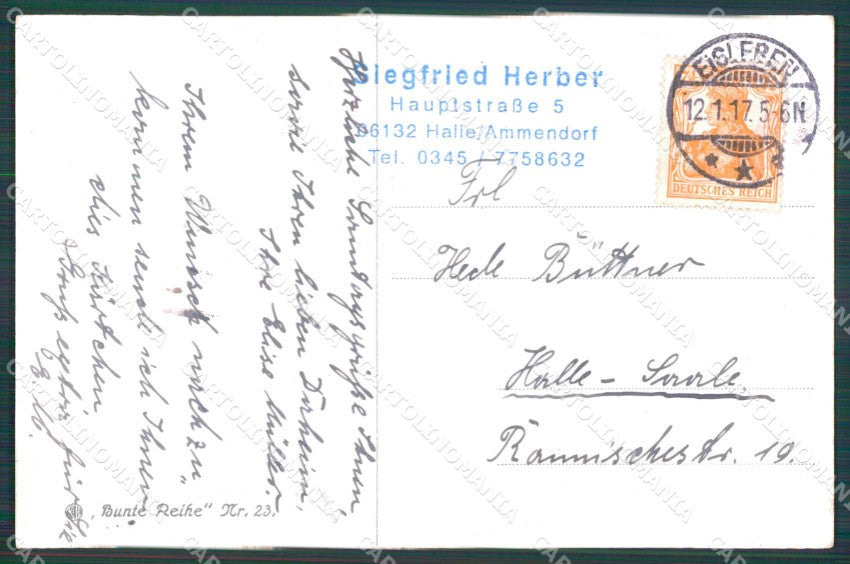 Herzliche Sonntagsgrüße Ihnen
sowie Ihren lieben Daheim,
Ihre Elise Müller.
Ihrem Wunsch nach zu
kommen sende ich Ihnen
dies Kärtchen
Gruß extra für Sie
E. M.
„Bunte Reihe" Nr. 23.
Siegfried Herber
Hauptstraße 5
06132 Halle/Ammendorf
Tel. 0345 / 7758632
EISLEBEN
12.1.17. 5-6N
DEUTSCHES REICH
Frl
Hede Büttner
Halle - Saale.
Rannischestr. 19.
CARTOLINOMANIA